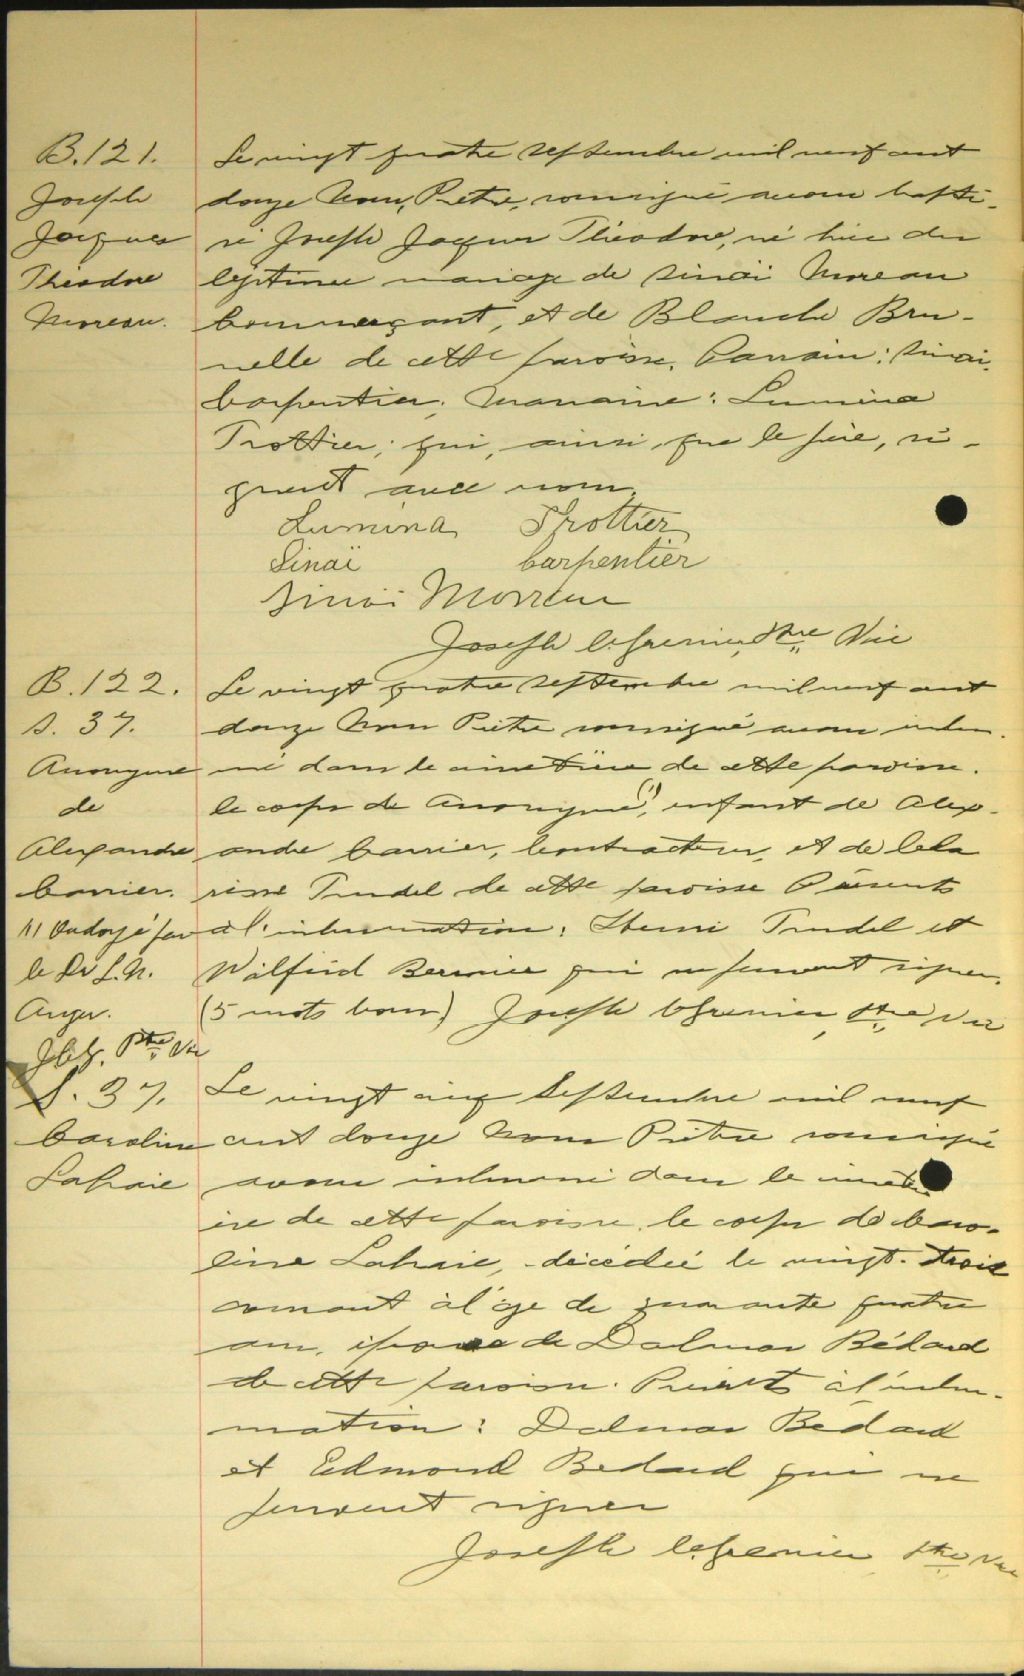 B.121.
Joseph
Jacques
Théodore
Moreau.
Le vingt quatre septembre mil neuf cent
douze Nous, Prêtre, soussigné avons bapti-
sé Joseph Jacques Théodore, né hier du
légitime mariage de Sinaï Moreau
Commerçant, et de Blanche Bru-
nelle de cette paroisse. Parrain: Sinai
Carpentier; Marraine: Lumina
Trottier; qui, ainsi que le père, si-
gnent avec nous.
Lumina Trottier
Sinaï Carpentier
Sinaï Moreau
Joseph C. Grenier, Ptre Vic
B.122.
S. 37.
Anonyme
de
Alexandre
Carrier.
(1) Ondoyé par
le Dr L.N.
Auger.
J.C.G. Ptre Vic
Le vingt quatre septembre mil neuf cent
douze Nous Prêtre soussigné avons inhu-
mé dans le cimetière de cette paroisse.
le corps de Anonyme (1), enfant de Alex-
andre Carrier, Contracteur, et de Cela
risse Trudel de cette paroisse Présents
à l'inhumation: Henri Trudel et
Wilfrid Bernier qui ne peuvent signer.
(5 mots bons) Joseph C. Grenier, Ptre Vic
S. 37.
Caroline
Lahaie
Le vingt cinq Septembre mil neuf
cent douze Nous Prêtre soussigné
avons inhumé dans le cimetiè
ère de cette paroisse, le corps de Caro-
line Lahaie, décédée le vingt-trois
courant à l'âge de quarante quatre
ans, épouse de Dalmas Bédard
de cette paroisse. Présents à l'inhu-
mation: Dalmas Bedard
et Edmond Bedard qui ne
peuvent signer
Joseph C. Grenier, Ptre Vic